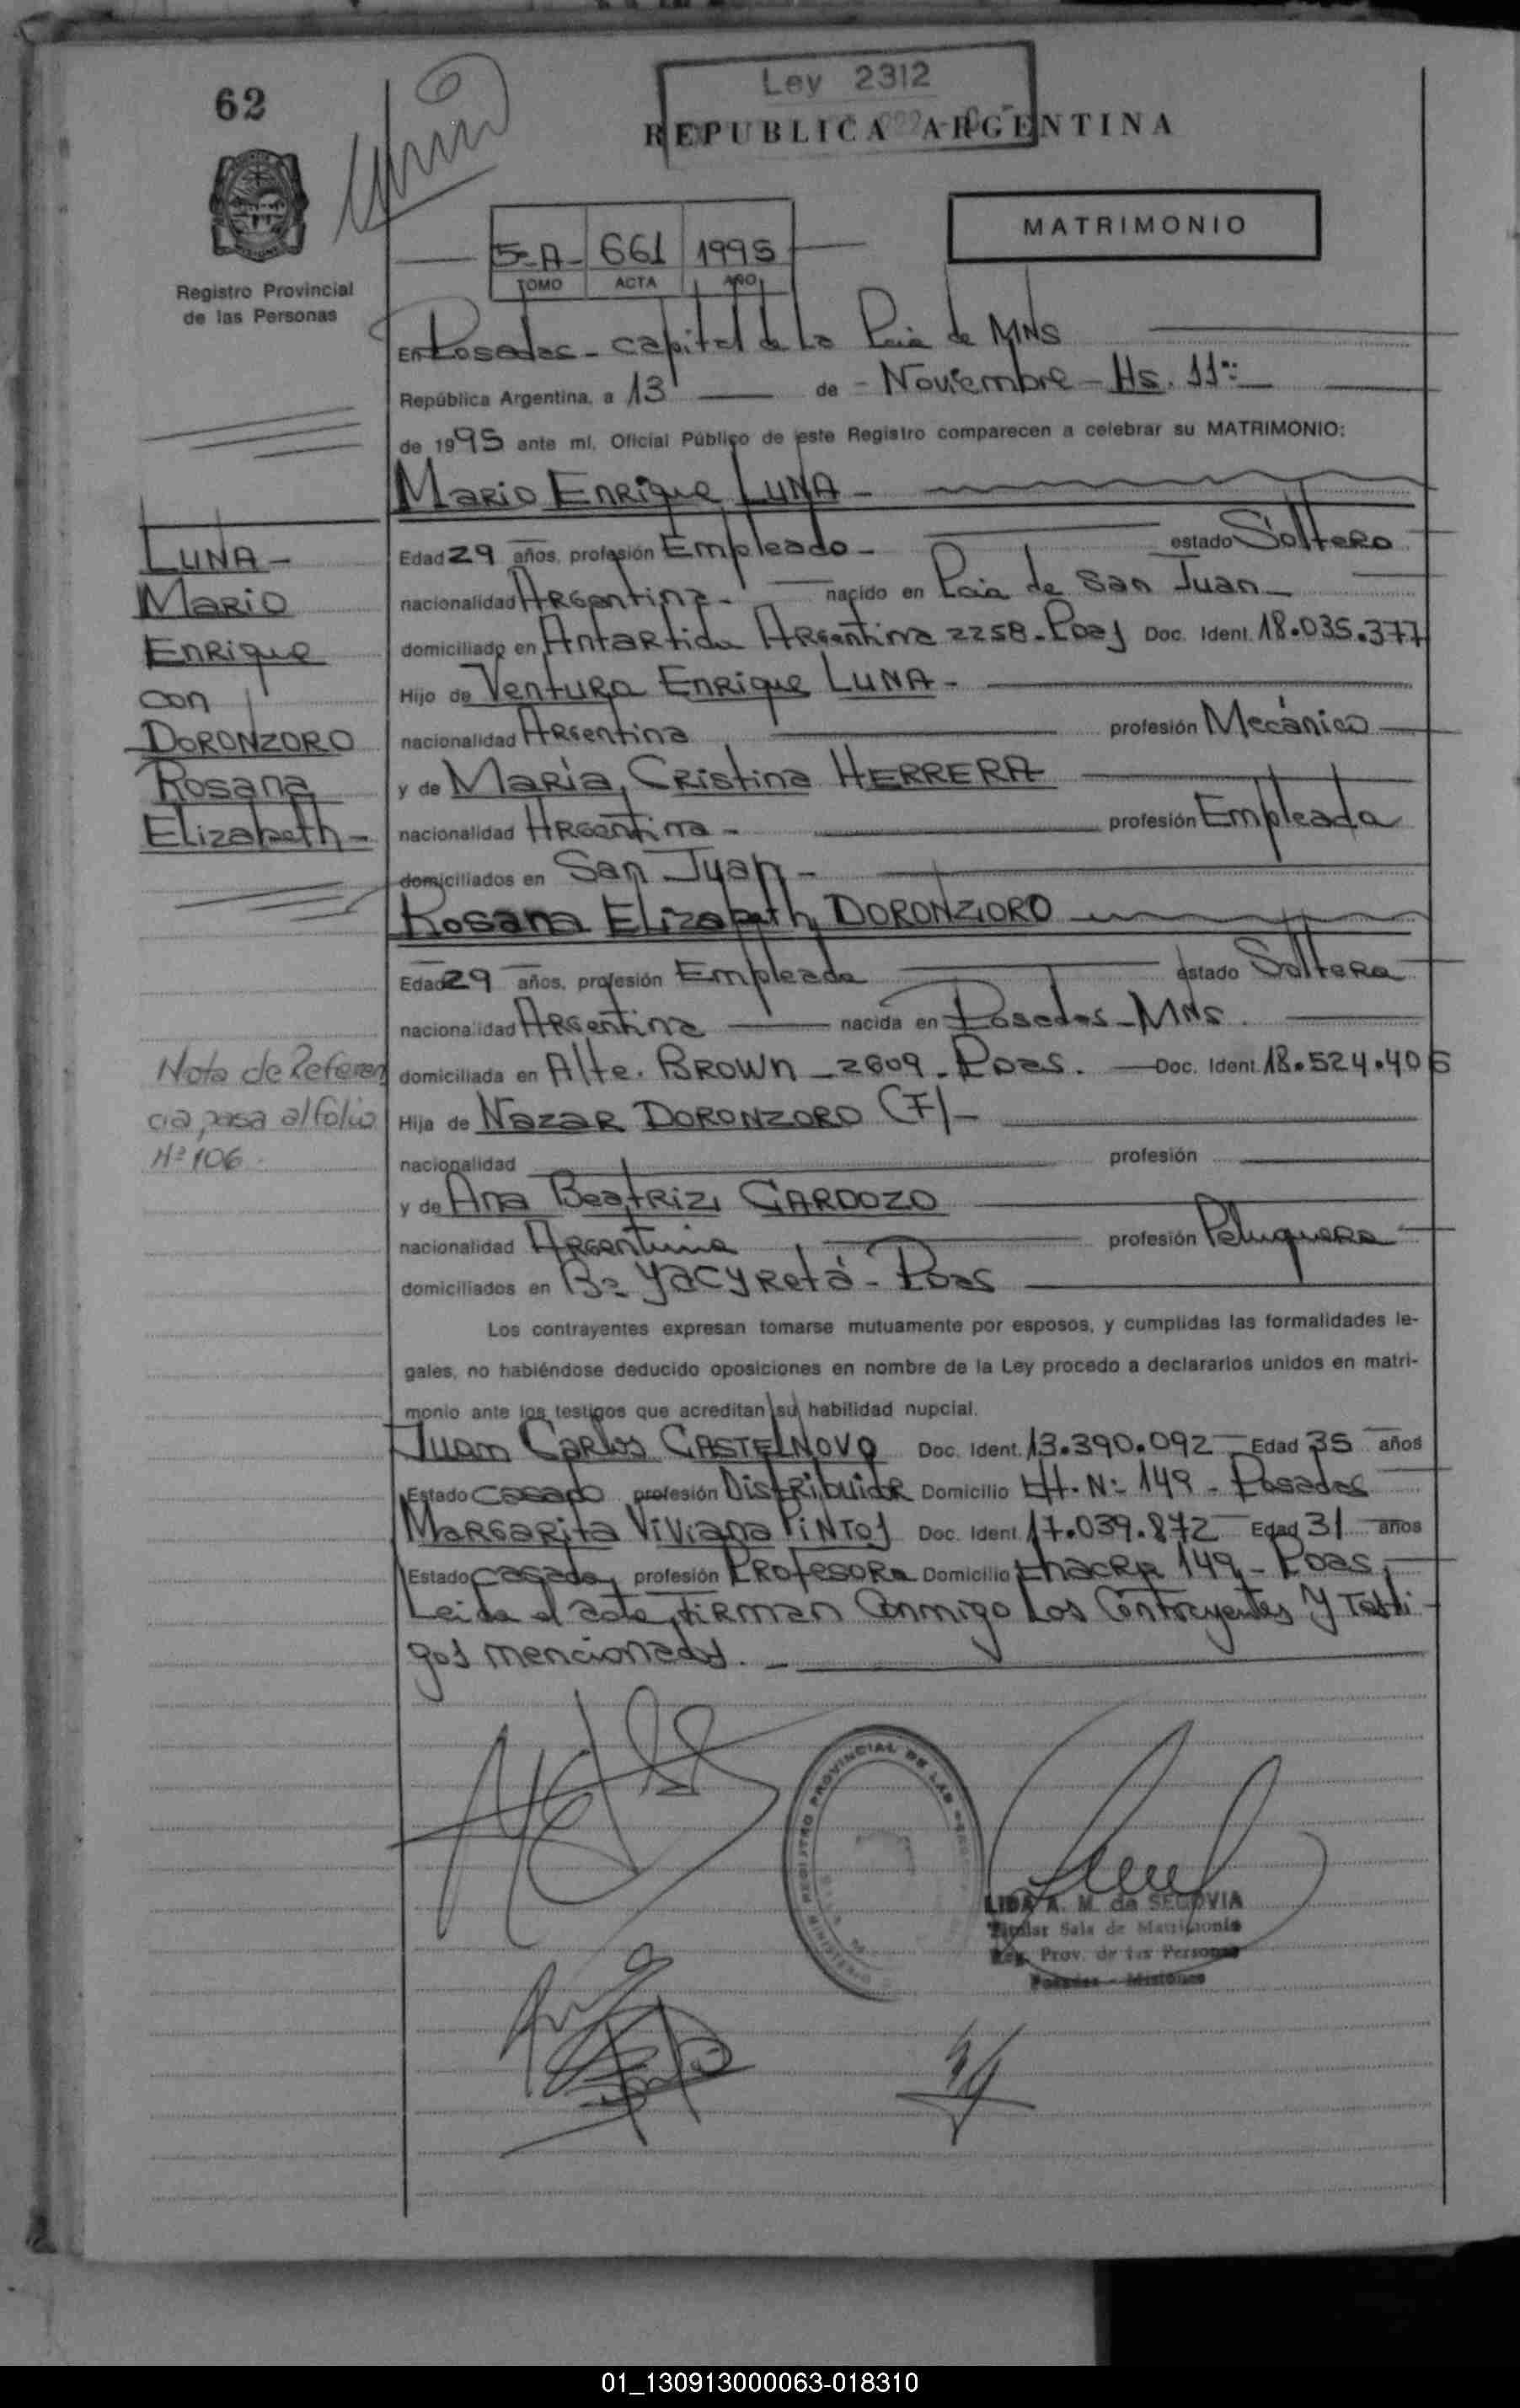 62
Ley 2312
REPUBLICA ARGENTINA
MATRIMONIO
5-A- 661 1995
TOMO ACTA AÑO
Registro Provincial
de las Personas
En Posadas - capital de la Pcia de MNS
República Argentina, a 13 de - Noviembre - Hs. 11
de 1995 ante mí, Oficial Público de este Registro comparecen a celebrar su MATRIMONIO:
Mario Enrique LUNA -
Edad 29 años, profesión Empleado - estado Soltero
nacionalidad Argentina - nacido en Pcia de San Juan -
domiciliado en Antartida Argentina 2258 - Pdas Doc. Ident. 18.035.377
Hijo de Ventura Enrique LUNA -
nacionalidad Argentina profesión Mecánico
y de María Cristina HERRERA
nacionalidad Argentina - profesión Empleada
domiciliados en San Juan -
Rosana Elizabeth DORONZORO
Edad 29 años, profesión Empleada estado Soltera
nacionalidad Argentina nacida en Posadas - MNS.
domiciliada en Alte. BROWN - 2609 - Pdas. Doc. Ident. 18.524.406
Hija de Nazar DORONZORO (F) -
nacionalidad profesión
y de Ana Beatriz CARDOZO
nacionalidad Argentina profesión Peluquera
domiciliados en Bº Yacyretá - Pdas
Los contrayentes expresan tomarse mutuamente por esposos, y cumplidas las formalidades le-
gales, no habiéndose deducido oposiciones en nombre de la Ley procedo a declararlos unidos en matri-
monio ante los testigos que acreditan su habilidad nupcial.
Juan Carlos CASTELNOVO Doc. Ident. 13.390.092 Edad 35 años
Estado Casado profesión Distribuidor Domicilio CH. Nº 149 - Posadas
Margarita Viviana PINTOS Doc. Ident. 17.039.872 Edad 31 años
Estado casada profesión Profesora Domicilio Chacra 149 - Pdas.
Leida el acta, firman conmigo los Contrayentes y Testi-
gos mencionados. -
LUNA -
Mario
Enrique
con
DORONZORO
Rosana
Elizabeth -
Nota de Referen
cia pasa al folio
Nº 106.
REGISTRO PROVINCIAL DE LAS
MINISTERIO
LIDA A. M. de SEGOVIA
Titular Sala de Matrimonio
Reg. Prov. de las Personas
Posadas - Misiones
01_130913000063-018310